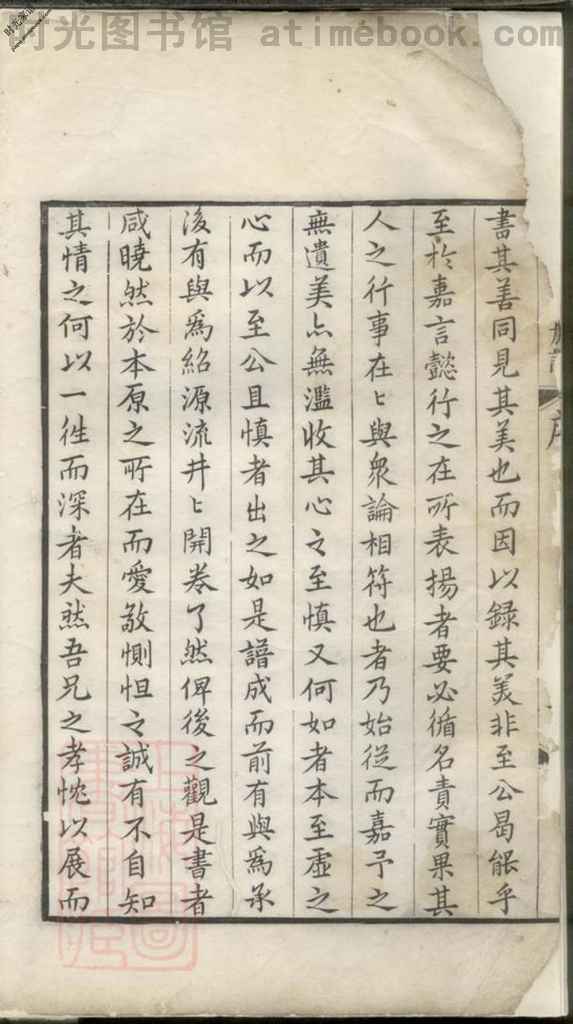 时光图书馆 atimebook.com
書其善同見其美也而因以録其美非至公曷能乎
至於嘉言懿行之在所表揚者要必循名責實果其
人之行事在〻與衆論相符也者乃始從而嘉予之
無遺美亦無濫收其心之至慎又何如者本至虛之
心而以至公且慎者出之如是譜成而前有與為承
後有與爲紹源流井〻開卷了然俾後之觀是書者
咸曉然於本原之所在而愛敬惻怛之誠有不自知
其情之何以一徃而深者夫然吾兄之孝忱以展而